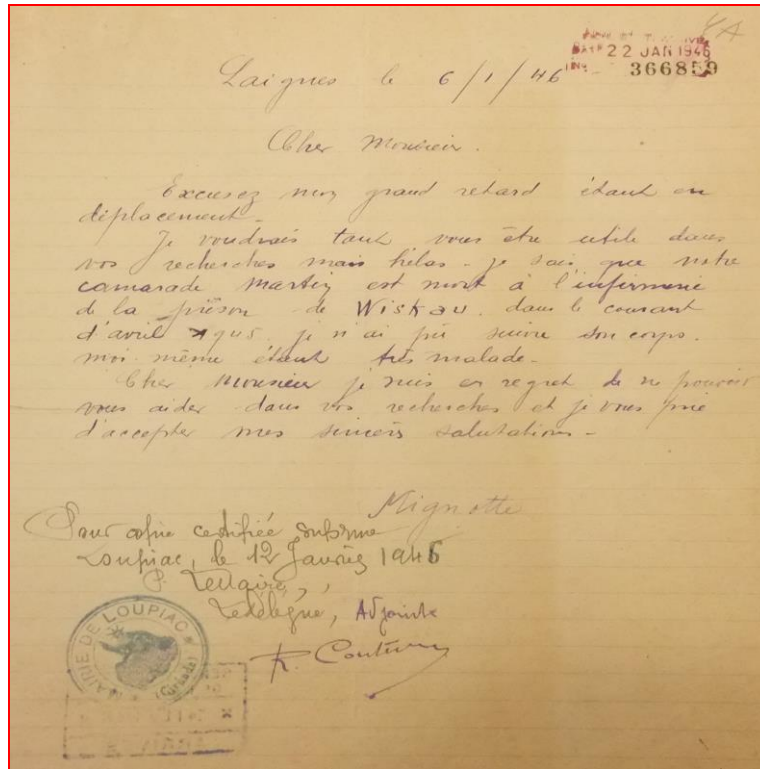 22 JAN 1946
366859
Laignes le 6/1/46
Cher Monsieur.
Excusez mon grand retard étant en
déplacement.
Je voudrais tant vous être utile dans
vos recherches mais hélas - je sais que notre
camarade Martin est mort à l'infirmerie
de la prison de Wiskau, dans le courant
d'avril je n'ai pu suivre son corps.
moi-même étant très malade.
Cher Monsieur je suis en regret de ne pouvoir
vous aider dans vos recherches et je vous prie
d'accepter mes sincères salutations -
Mignotte
Pour copie certifiée conforme
Loupiac, le 12 Janvier 1946
P. Le Maire,
Le délégué, Adjoint
MAIRIE DE LOUPIAC